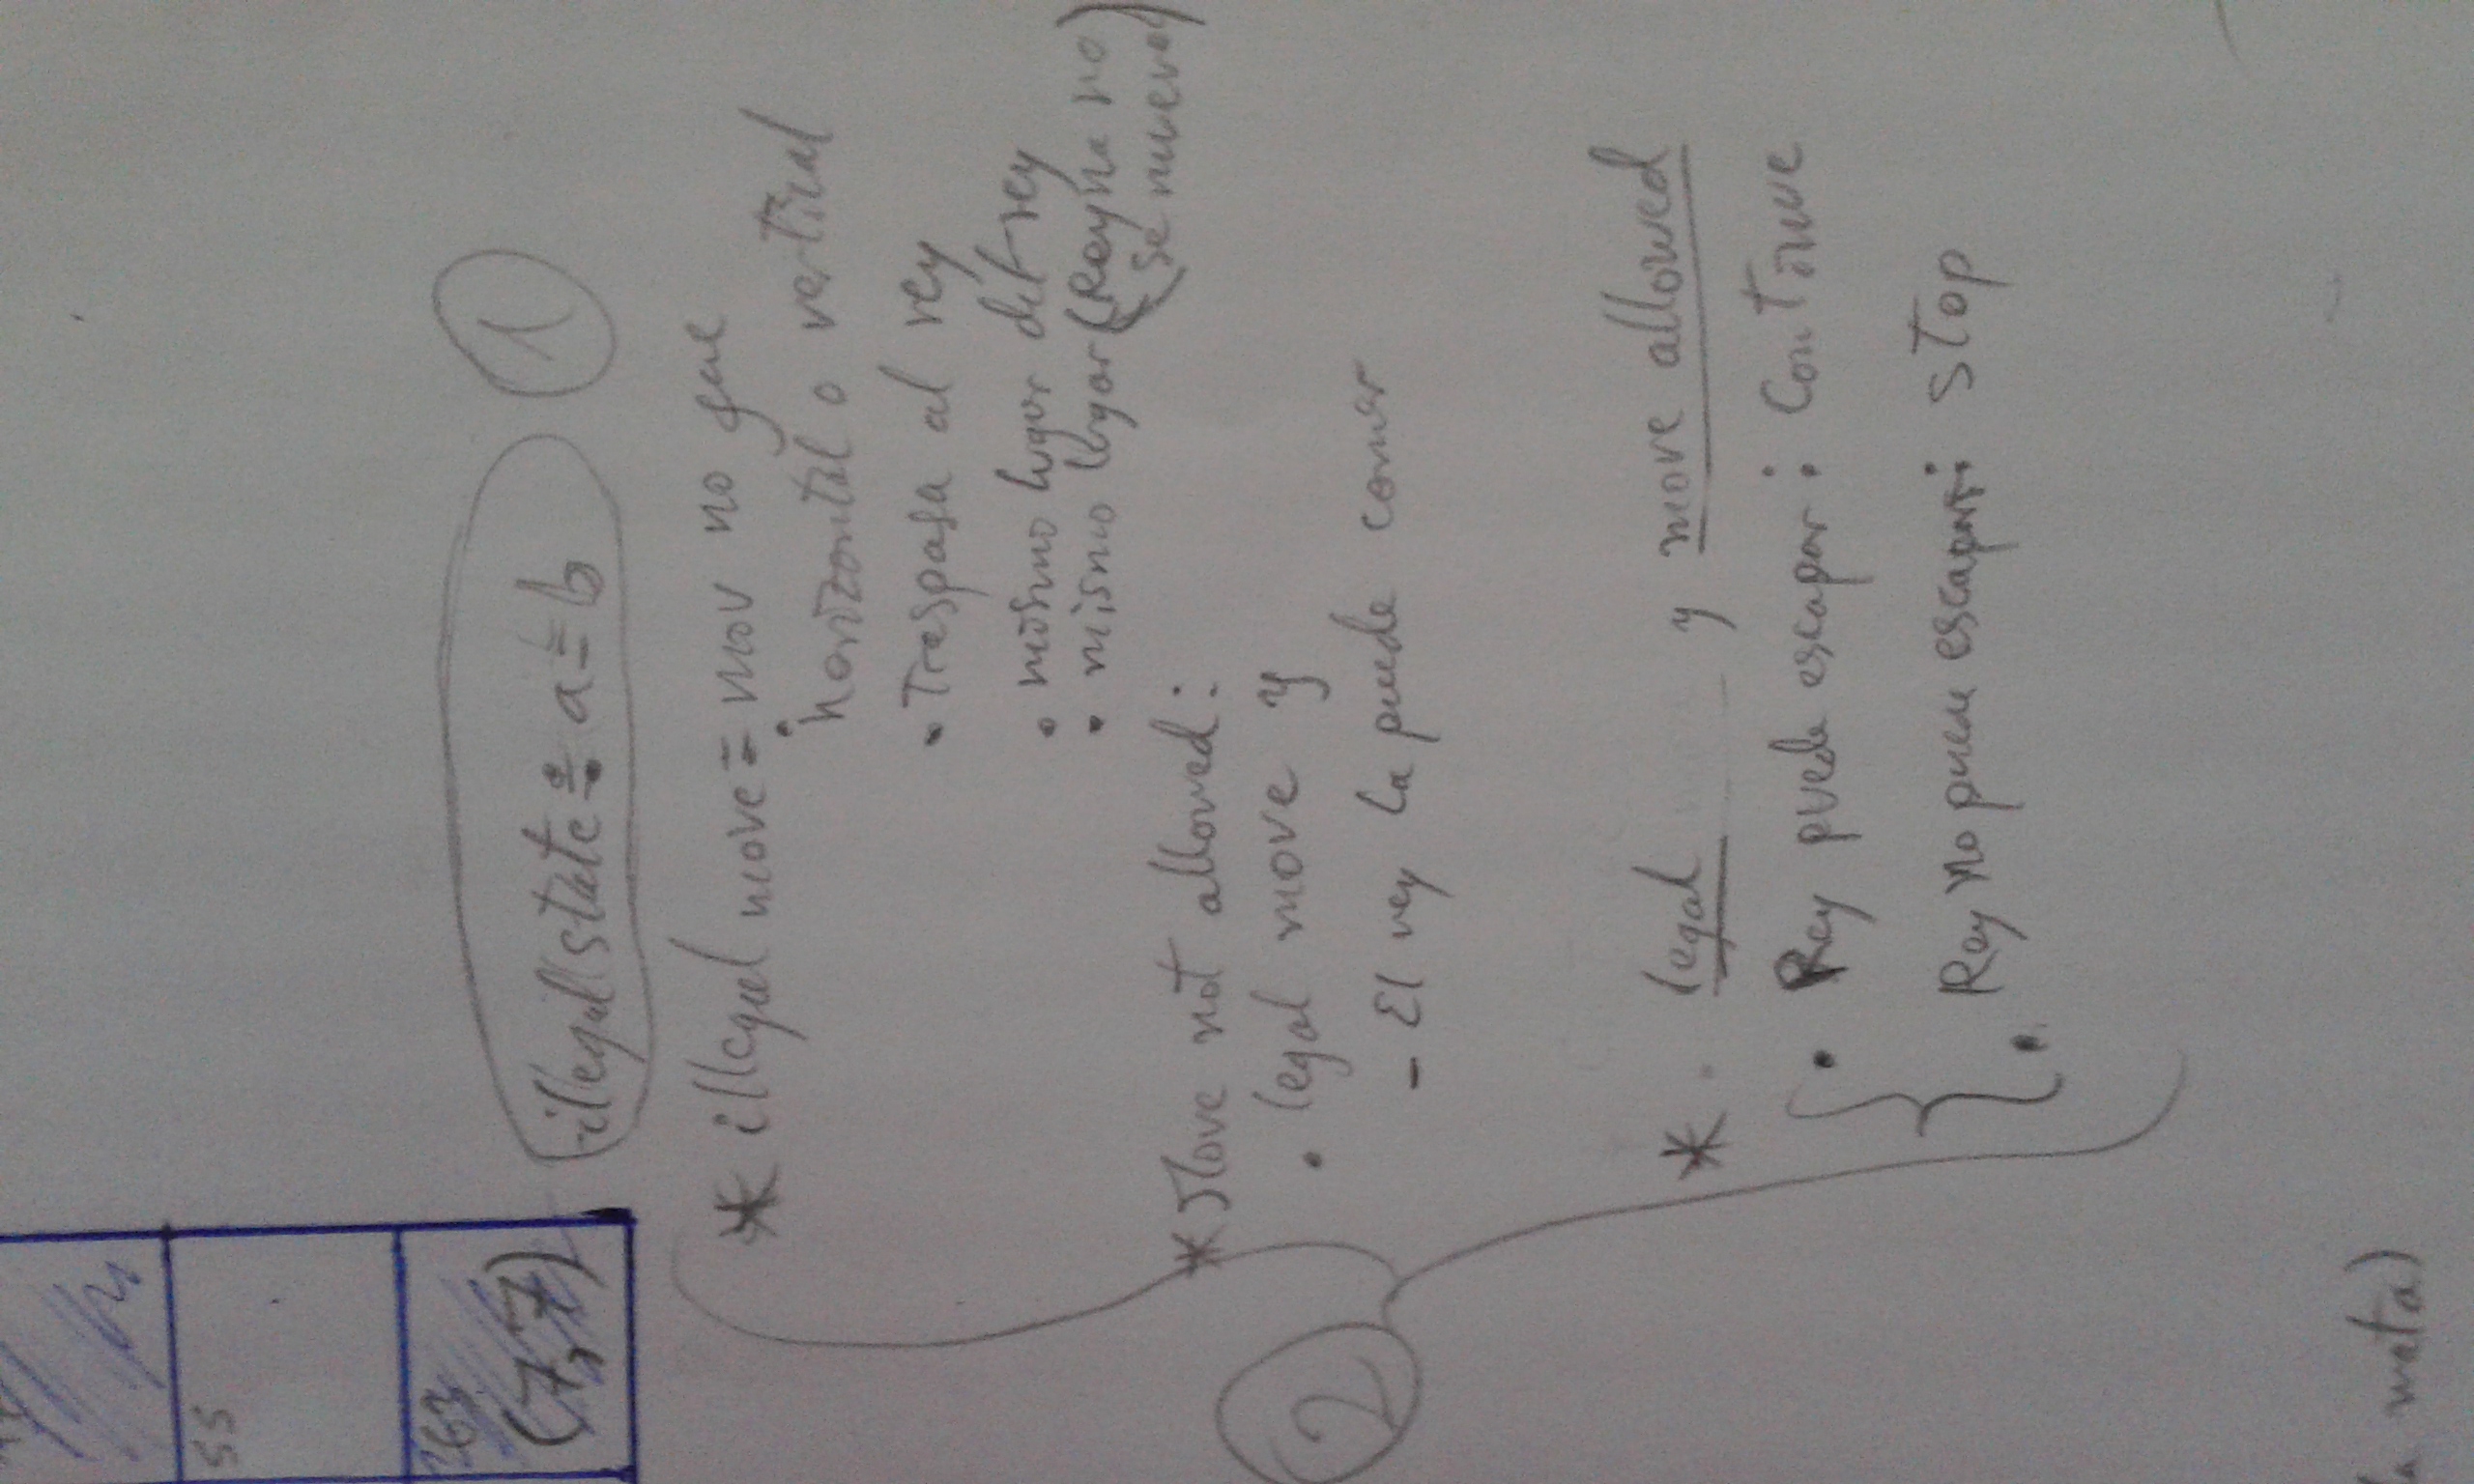 55
63
(7,7)
illegal state: a = b
1
* illegal move = mov no que
horizontal o vertical
• Traspasa al rey
• mismo lugar del rey
• mismo lugar (Reyna no
se mueve)
2
* Move not allowed:
• legal move y
- El rey la puede comer
* legal y move allowed
• Rey puede escapar: Continue
• Rey no puede escapar: Stop
meta)